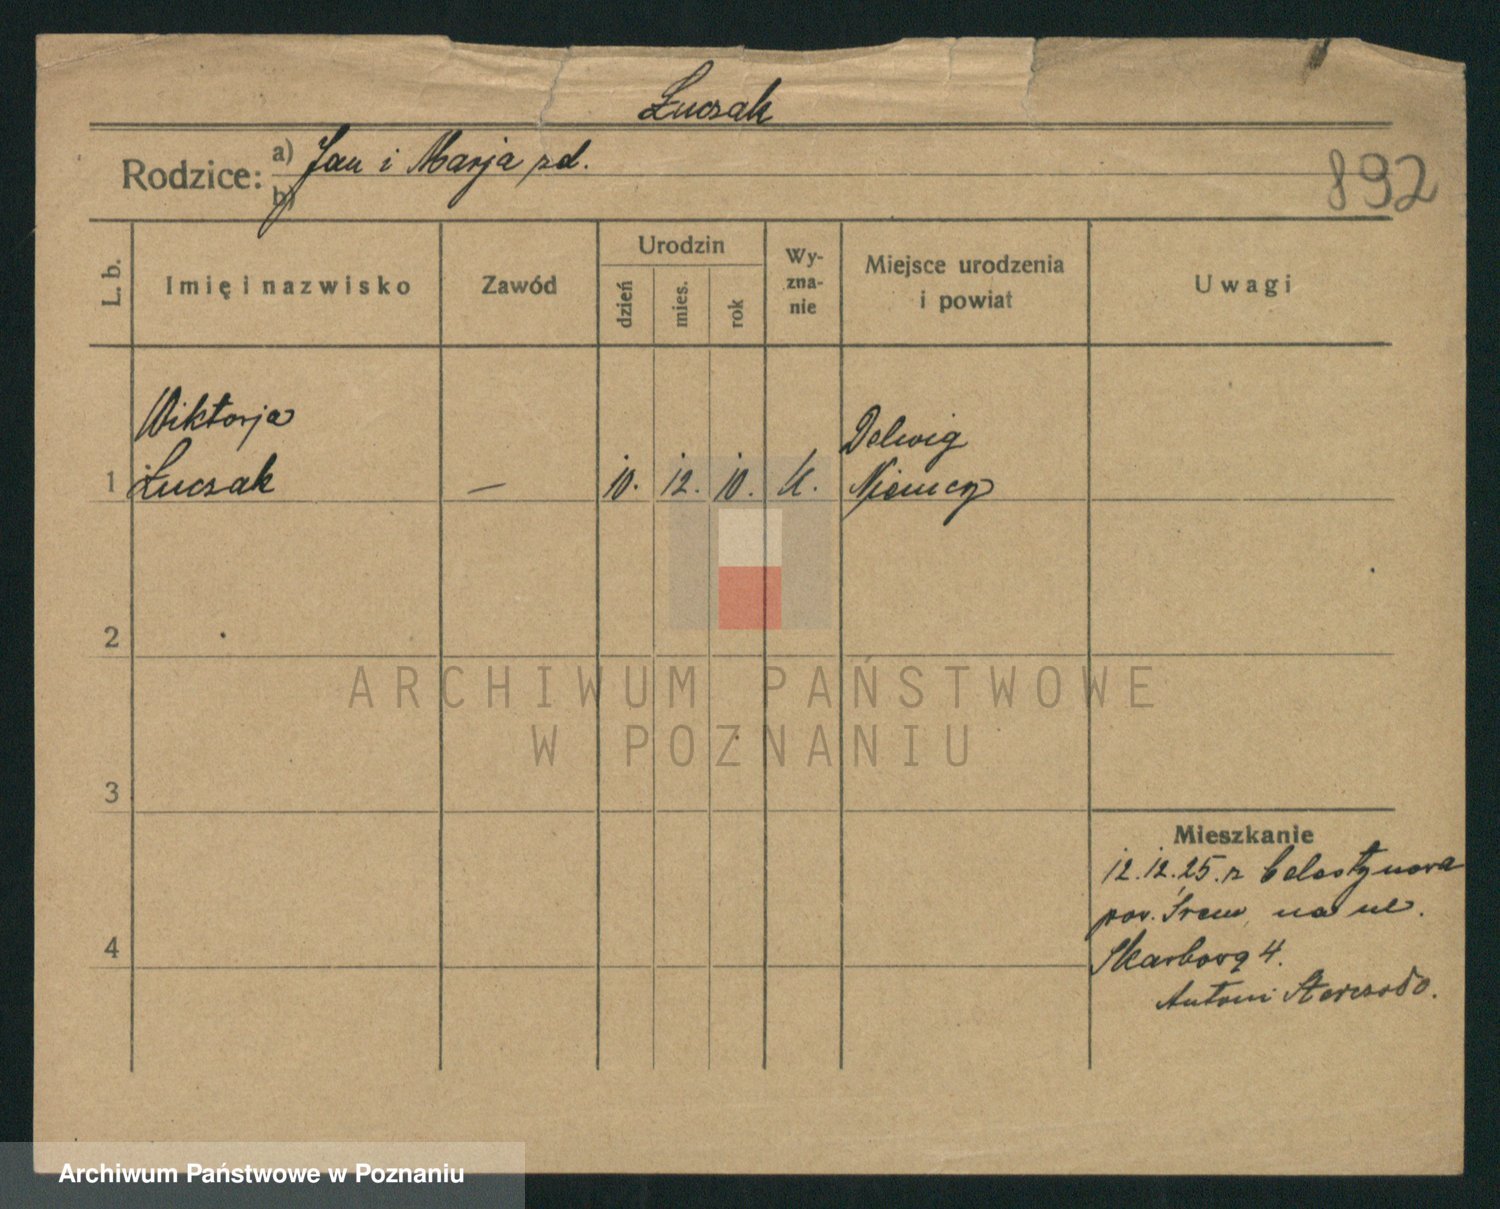 Łuczak
Rodzice: a) Jan i Marja zd.
b)
892
L. b.
Imię i nazwisko
Zawód
Urodzin
dzień
mies.
rok
Wy-
zna-
nie
Miejsce urodzenia
i powiat
Uwagi
Wiktorja
1 Łuczak — 10. 12. 10. k.
Delwig
Niemcy
2
3
4
Mieszkanie
12.12.25. z Celestynowa
pow. Śrem, na ul.
Skarbową 4.
Antoni
ARCHIWUM PAŃSTWOWE
W POZNANIU
Archiwum Państwowe w Poznaniu